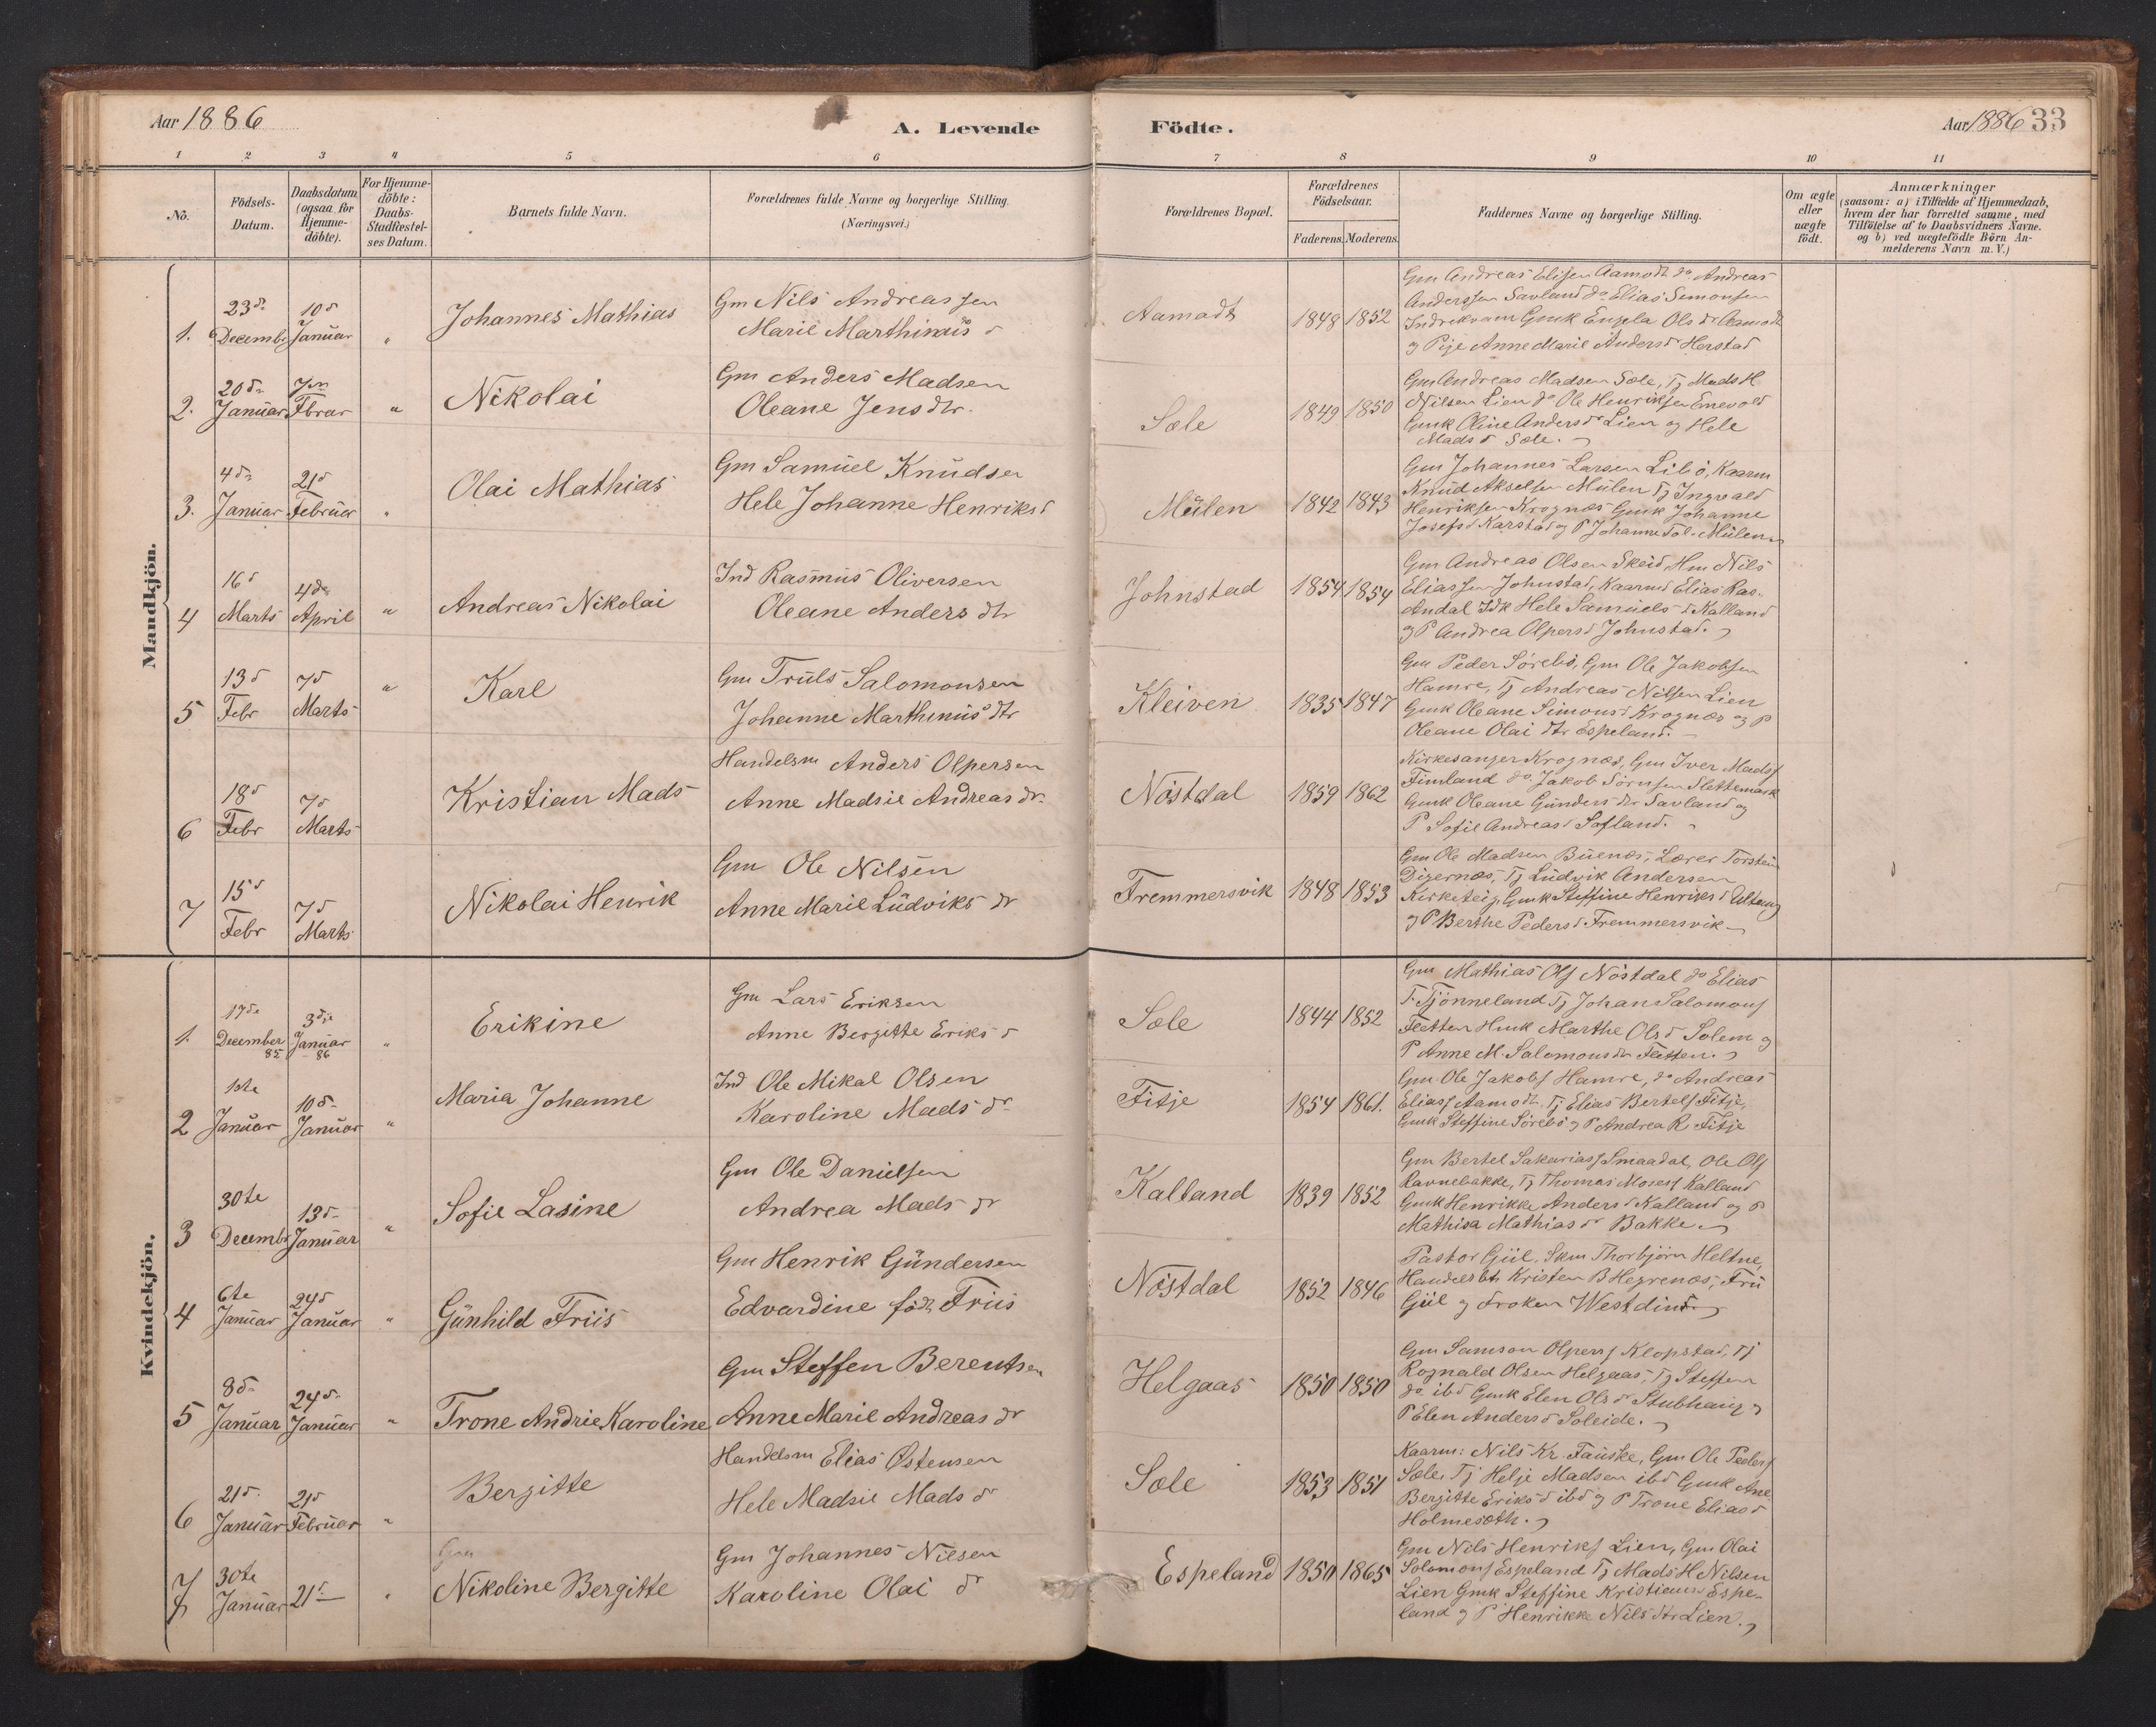 Aar 1886
A. Levende Födte.
Aar 1886 33
1 2 3 4 5 6 7 8 9 10 11
No.
Födsels-Datum.
Daabsdatum (ogsaa for Hjemme-döbte).
For Hjemme-döbte: Daabs-Stadfæstel-ses Datum.
Barnets fulde Navn.
Forældrenes fulde Navne og borgerlige Stilling.
(Næringsvei.)
Forældrenes Bopæl.
Forældrenes Födselsaar.
Faderens. Moderens.
Faddernes Navne og borgerlige Stilling.
Om ægte eller uægte födt.
Anmærkninger
(saasom: a) i Tilfælde af Hjemmedaab,
hvem der har forrettet samme, med
Tilföielse af to Daabsvidners Navne.
og b) ved uægtefödte Börn An-
melderens Navn m.V.)
Mandkjön.
1. 23d December 10d Januar " Johannes Mathias
Gm Nils Andreassen
Marie Marthinius d
Aamodt 1848 1852
Gm Andreas Elisen Aamodt do Andreas
Anderssen Savland do Elias Simonsen
Indrekvam Gmk Engela Ols dr Aamodt
og Pige Anne Marie Anders d Herstad
2. 20d Januar 7en Fbrar " Nikolai
Gm Anders Madsen
Oleane Jens dtr.
Sæle 1849 1850
Gm Andreas Madsen Sæle, Tj Mads H
Nilsen Lien do Ole Henriksen Enevold
Gmk Oline Anders dr Lien og Hele
Mads d Sæle.
3. 4de Januar 21d Februar " Olai Mathias
Gm Samuel Knudsen
Hele Johanne Henriks d
Mulen 1842 1843
Gm Johannes Larsen Libö, Kaarm
Knud Akselsen Mulen Tj Ingvald
Henriksen Krognæs Gmk Johanne
Josefs d Karstad og P Johanne Tol. Mulen
4 16d Marts 4de April " Andreas Nikolai
Ind Rasmus Oliversen
Oleane Anders dtr
Johnstad 1854 1854
Gm Andreas Olsen Skeid, Hm Nils
Eliassen Johnstad, Kaarmd Elias Ras.
Andal Idk Hele Samuels d Kalland
og P Andrea Olpers d Johnstad.
5 13d Febr 7d Marts " Karl
Gm Truls Salomonsen
Johanne Marthinius dtr
Kleiven 1835 1847
Gm Peder Sørebö, Gm Ole Jakobsen
Hamre, Tj Andreas Nilsen Lien
Gmk Oleane Simons d Krognæs og P
Oleane Olai dtr Espeland.
6 18d Febr 7d Marts Kristian Mads
Handelsm Anders Olpersen
Anne Madsie Andreas dr.
Nöstdal 1859 1862
Kirkesanger Krognæs, Gm Iver Mads
Fimland do Jakob Sörensen Slettemark
Gmk Oleane Gunders dtr Savland og
P Sofie Andreas d Sofland.
7 15d Febr 7d Marts Nikolai Henrik
Gm Ole Nilsen
Anne Marie Ludviks dr
Fremmersvik 1848 1853
Gm Ole Madsen Buenæs, Lærer Torstein
Digernæs, Tj Ludvik Andersen
Kirketeig, Gmk Steffine Henriks d
og P Berthe Peders d Fremmersvik
Kvindekjön.
1. 17de December 85 3die Januar 86 " Erikine
Gm Lars Eriksen
Anne Bergitte Eriks d
Sæle 1844 1852
Gm Mathias Ols Nöstdal do Elias
T. Tjönneland Tj Johan Salomons
Fletten Hmk Marthe Ols d Solem og
P Anne M. Salomons dtr Fletten.
2 1ste Januar 10d Januar " Maria Johanne
Ind Ole Mikal Olsen
Karoline Mads dr
Fitje 1854 1861.
Gm Ole Jakobs Hamre, do Andreas
Elias Aamodt, Tj Elias Bertels Fitje,
Gmk Steffine Sörebö og P Andrea R. Fitje
3 30te Decembr 13d Januar " Sofie Lasine
Gm Ole Danielsen
Andrea Mads dr
Kalland 1839 1852
Gm Bertel Sakarias Smaadal, Ole Ols
Ravnebakke, Tj Thomas Moses Kalland
Gmk Henrikke Anders d Kalland og P
Mathisa Mathias dr Bakke.
4 6te Januar 24d Januar " Gunhild Friis
Gm Henrik Gundersen
Edvardine födt Friis
Nöstdal 1852 1846
Pastor Gül, Skm Thorbjörn Heltne,
Handelsbt. Kristen B Hegrenæs, Fru
Gül og Froken Westdind
5 8d Januar 24d Januar " Trone Andrie Karoline
Gm Steffen Berentsen
Anne Marie Andreas dr
Helgaas 1850 1850
Gm Samson Olpers Klopstad, Tj
Rognald Olsen Helgaas, Tj Steffen
do ibd Gmk Elen Ols dr Stubhaug og
P Elen Anders d Soleide.
6 21d Januar 21d Februar " Bergitte
Handelsm Elias Østensen
Hele Madsie Mads d
Sæle 1853 1851
Kaarm: Nils Kr. Fauske, Gm Ole Peders
Sæle, Tj Helje Madsen ibd Gmk Ane
Bergitte Eriks d ibd og P Trone Elias d
Holmesæth.
7 30te Januar 21d — " Nikoline Bergitte
Gm Johannes Nilsen
Karoline Olai dr
Espeland 1850 1865
Gm Nils Henriks Lien, Gm Olai
Solomons Espeland Tj Mads H Nilsen
Lien Gmk Steffine Kristians Espe-
land og P Henrikke Nils dtr Lien.